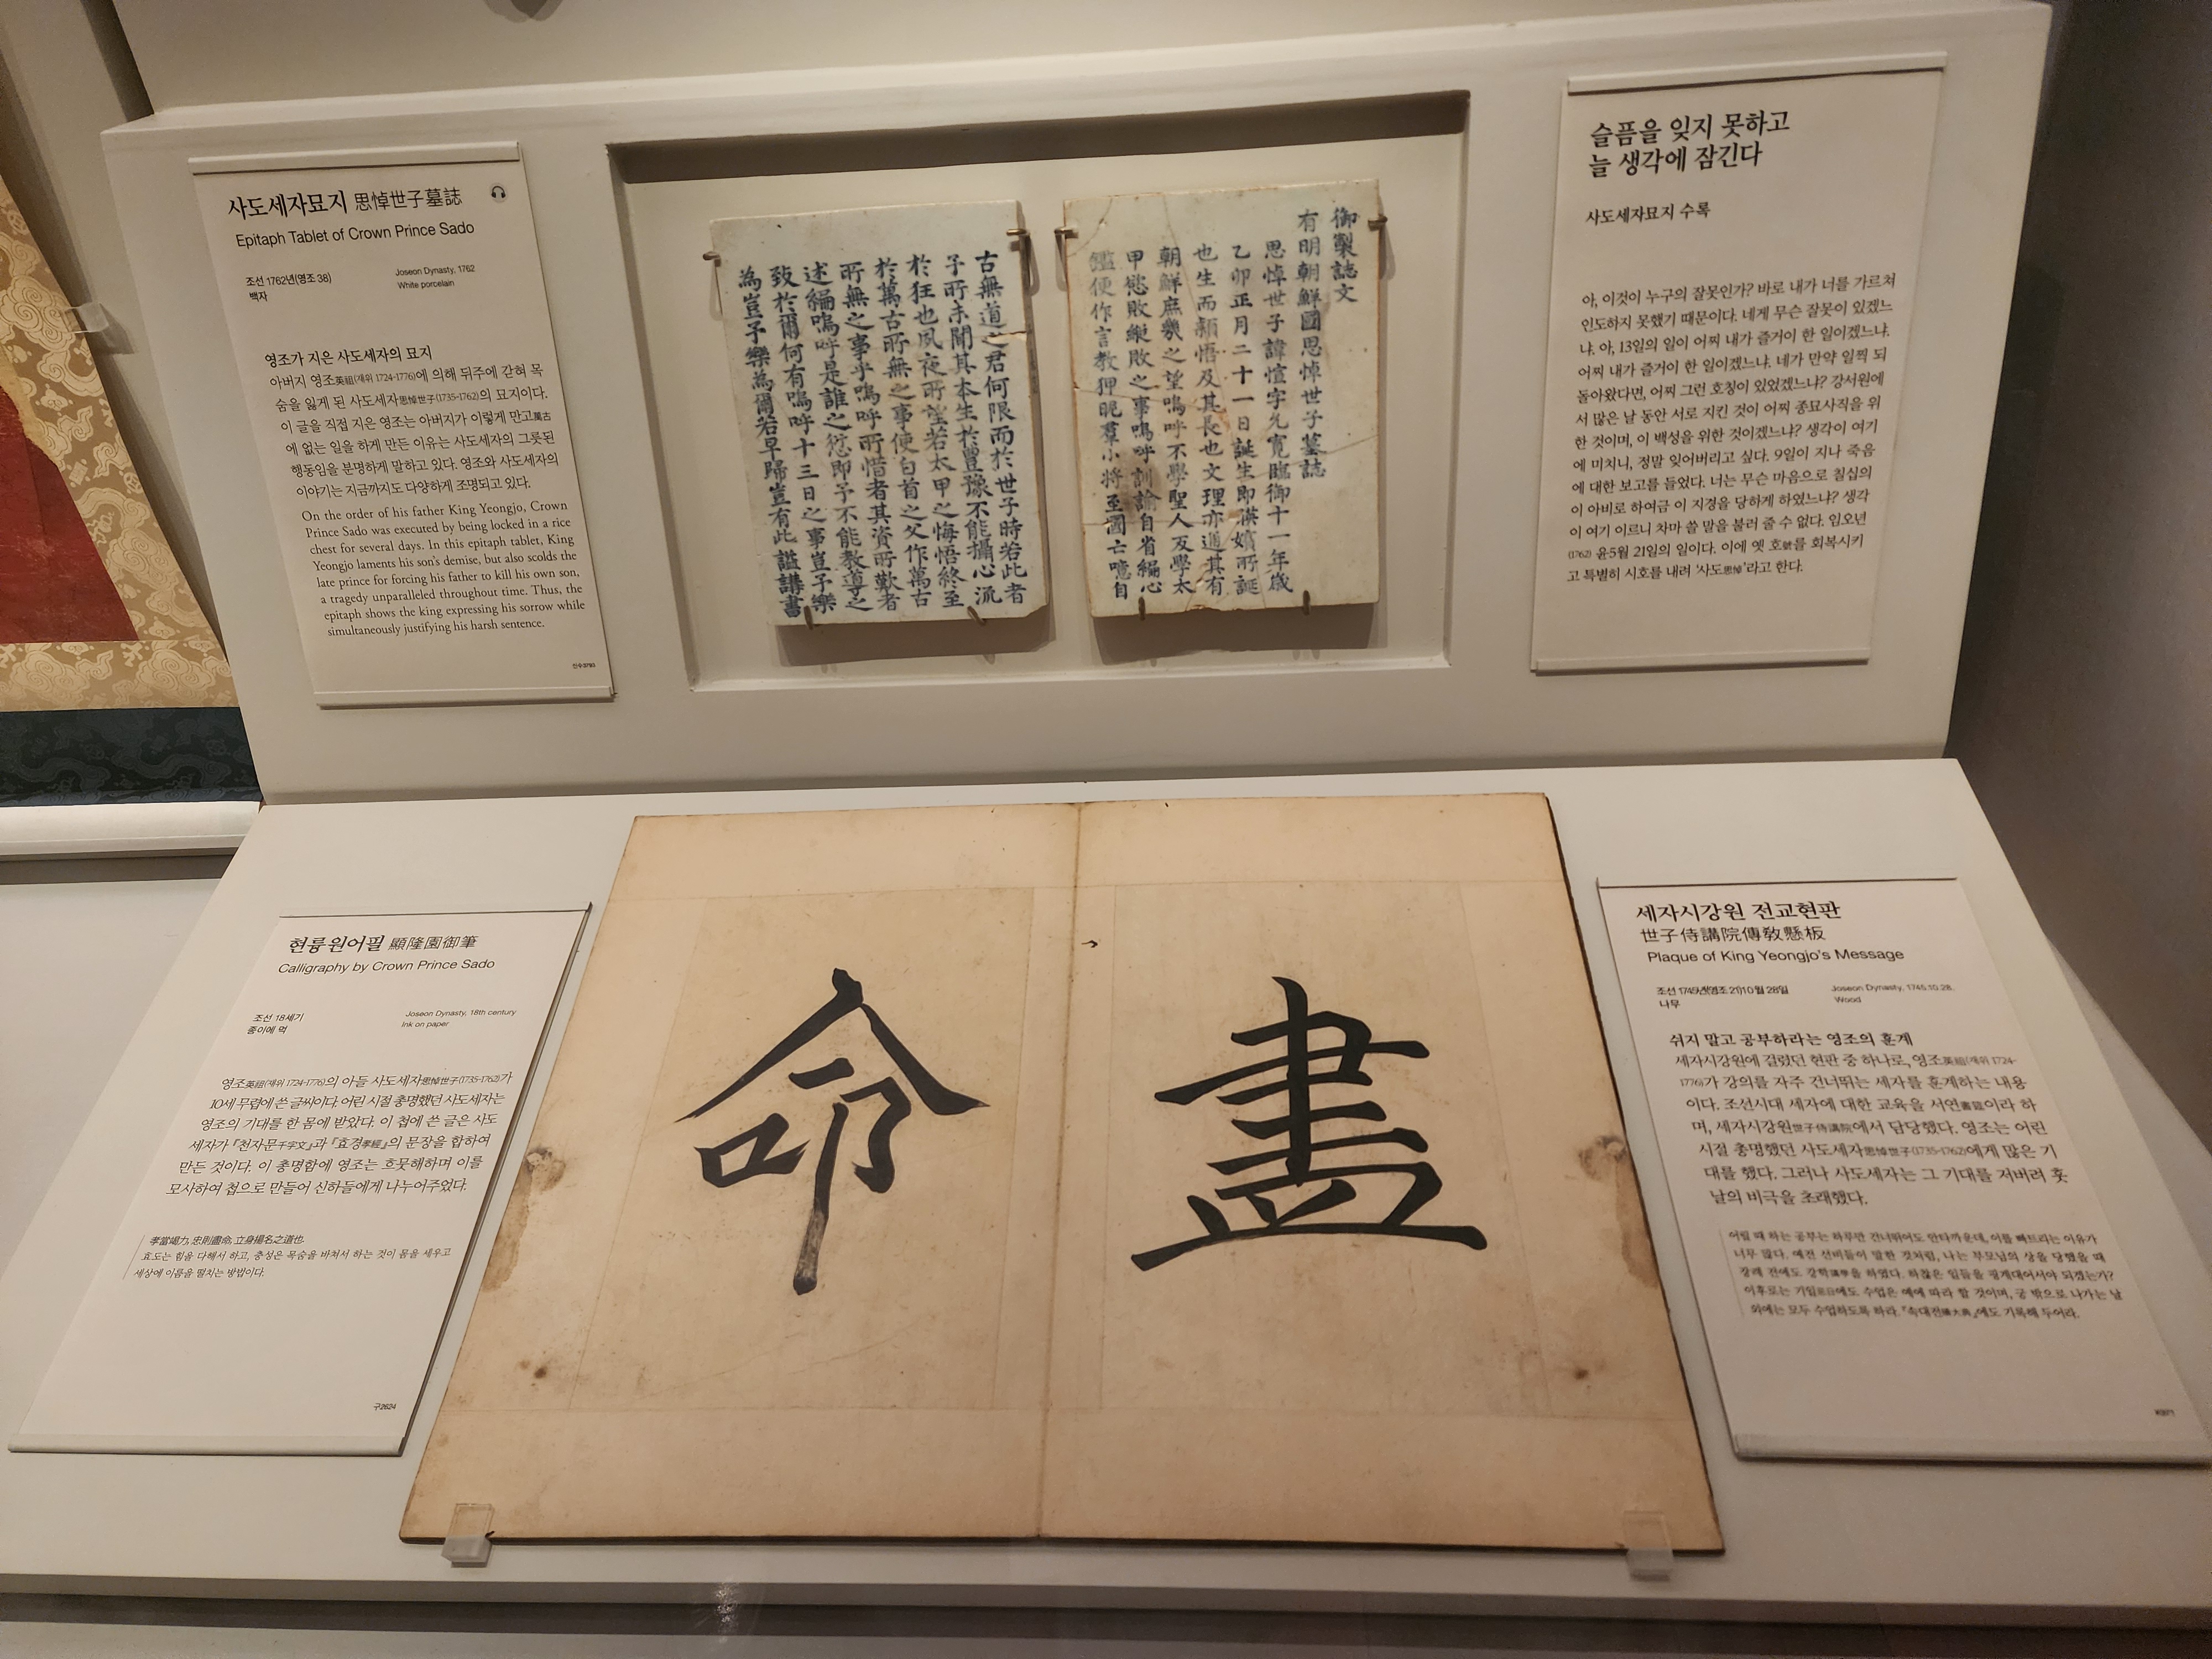 사도세자묘지 思悼世子墓誌
Epitaph Tablet of Crown Prince Sado
조선 1762년(영조 38)
백자
Joseon Dynasty, 1762
White porcelain
영조가 지은 사도세자의 묘지
아버지 영조英祖(재위 1724-1776)에 의해 뒤주에 갇혀 목
숨을 잃게 된 사도세자思悼世子(1735-1762)의 묘지이다.
이 글을 직접 지은 영조는 아버지가 이렇게 만고萬古
에 없는 일을 하게 만든 이유는 사도세자의 그릇된
행동임을 분명하게 말하고 있다. 영조와 사도세자의
이야기는 지금까지도 다양하게 조명되고 있다.
On the order of his father King Yeongjo, Crown
Prince Sado was executed by being locked in a rice
chest for several days. In this epitaph tablet, King
Yeongjo laments his son's demise, but also scolds the
late prince for forcing his father to kill his own son,
a tragedy unparalleled throughout time. Thus, the
epitaph shows the king expressing his sorrow while
simultaneously justifying his harsh sentence.
御製誌文
有明朝鮮國思悼世子墓誌
思悼世子諱愃字允寬臨御十一年歲
乙卯正月二十一日誕生即暎嬪所誕
也生而穎悟及其長也文理亦通其有
朝鮮庶幾之望嗚呼不學聖人反學太
甲慾敗縱敗之事嗚呼訓諭自省編心
鑑便作言教狎昵羣小將至國亡噫自
古無道之君何限而於世子時若此者
予所未聞其本生於豊豫不能攝心流
於狂也夙夜所望若太甲之悔悟終至
於萬古所無之事使白首之父作萬古
所無之事乎嗚呼所惜者其資所歎者
述編嗚呼是誰之愆即予不能教導之
致於爾何有嗚呼十三日之事豈予樂
為豈予樂為爾若早歸豈有此諡講書
슬픔을 잊지 못하고
늘 생각에 잠긴다
사도세자묘지 수록
아, 이것이 누구의 잘못인가? 바로 내가 너를 가르쳐
인도하지 못했기 때문이다. 네게 무슨 잘못이 있겠느
냐. 아, 13일의 일이 어찌 내가 즐거이 한 일이겠느냐.
어찌 내가 즐거이 한 일이겠느냐. 네가 만약 일찍 되
돌아왔다면, 어찌 그런 호칭이 있었겠느냐? 강서원에
서 많은 날 동안 서로 지킨 것이 어찌 종묘사직을 위
한 것이며, 이 백성을 위한 것이겠느냐? 생각이 여기
에 미치니, 정말 잊어버리고 싶다. 9일이 지나 죽음
에 대한 보고를 들었다. 너는 무슨 마음으로 칠십의
이 아비로 하여금 이 지경을 당하게 하였느냐? 생각
이 여기 이르니 차마 쓸 말을 불러 줄 수 없다. 임오년
(1762) 윤5월 21일의 일이다. 이에 옛 호號를 회복시키
고 특별히 시호를 내려 '사도思悼'라고 한다.
현륭원어필 顯隆園御筆
Calligraphy by Crown Prince Sado
조선 18세기
종이에 먹
Joseon Dynasty, 18th century
Ink on paper
영조英祖(재위 1724-1776)의 아들 사도세자思悼世子(1735-1762)가
10세 무렵에 쓴 글씨이다. 어린 시절 총명했던 사도세자는
영조의 기대를 한 몸에 받았다. 이 첩에 쓴 글은 사도
세자가 『천자문千字文』과 『효경孝經』의 문장을 합하여
만든 것이다. 이 총명함에 영조는 흐뭇해하며 이를
모사하여 첩으로 만들어 신하들에게 나누어주었다.
孝當竭力, 忠則盡命, 立身揚名之道也.
효도는 힘을 다해서 하고, 충성은 목숨을 바쳐서 하는 것이 몸을 세우고
세상에 이름을 떨치는 방법이다.
구2624
盡
命
세자시강원 전교현판
世子侍講院傳敎懸板
Plaque of King Yeongjo's Message
조선 1745년(영조 21)10월 28일
나무
Joseon Dynasty, 1745.10.28.
Wood
쉬지 말고 공부하라는 영조의 훈계
세자시강원에 걸렸던 현판 중 하나로, 영조英祖(재위 1724-
1776)가 강의를 자주 건너뛰는 세자를 훈계하는 내용
이다. 조선시대 세자에 대한 교육을 서연書筵이라 하
며, 세자시강원世子侍講院에서 담당했다. 영조는 어린
시절 총명했던 사도세자思悼世子(1735-1762)에게 많은 기
대를 했다. 그러나 사도세자는 그 기대를 저버려 훗
날의 비극을 초래했다.
어릴 때 하는 공부는 하루만 건너뛰어도 안타까운데, 이를 빠트리는 이유가
너무 많다. 예전 선비들이 말한 것처럼, 나는 부모님의 상을 당했을 때
장례 전에도 강학講學을 하였다. 하찮은 일들을 핑계대어서야 되겠는가?
이후로는 기일忌日에도 수업은 예에 따라 할 것이며, 궁 밖으로 나가는 날
외에는 모두 수업하도록 하라. 『속대전續大典』에도 기록해 두어라.